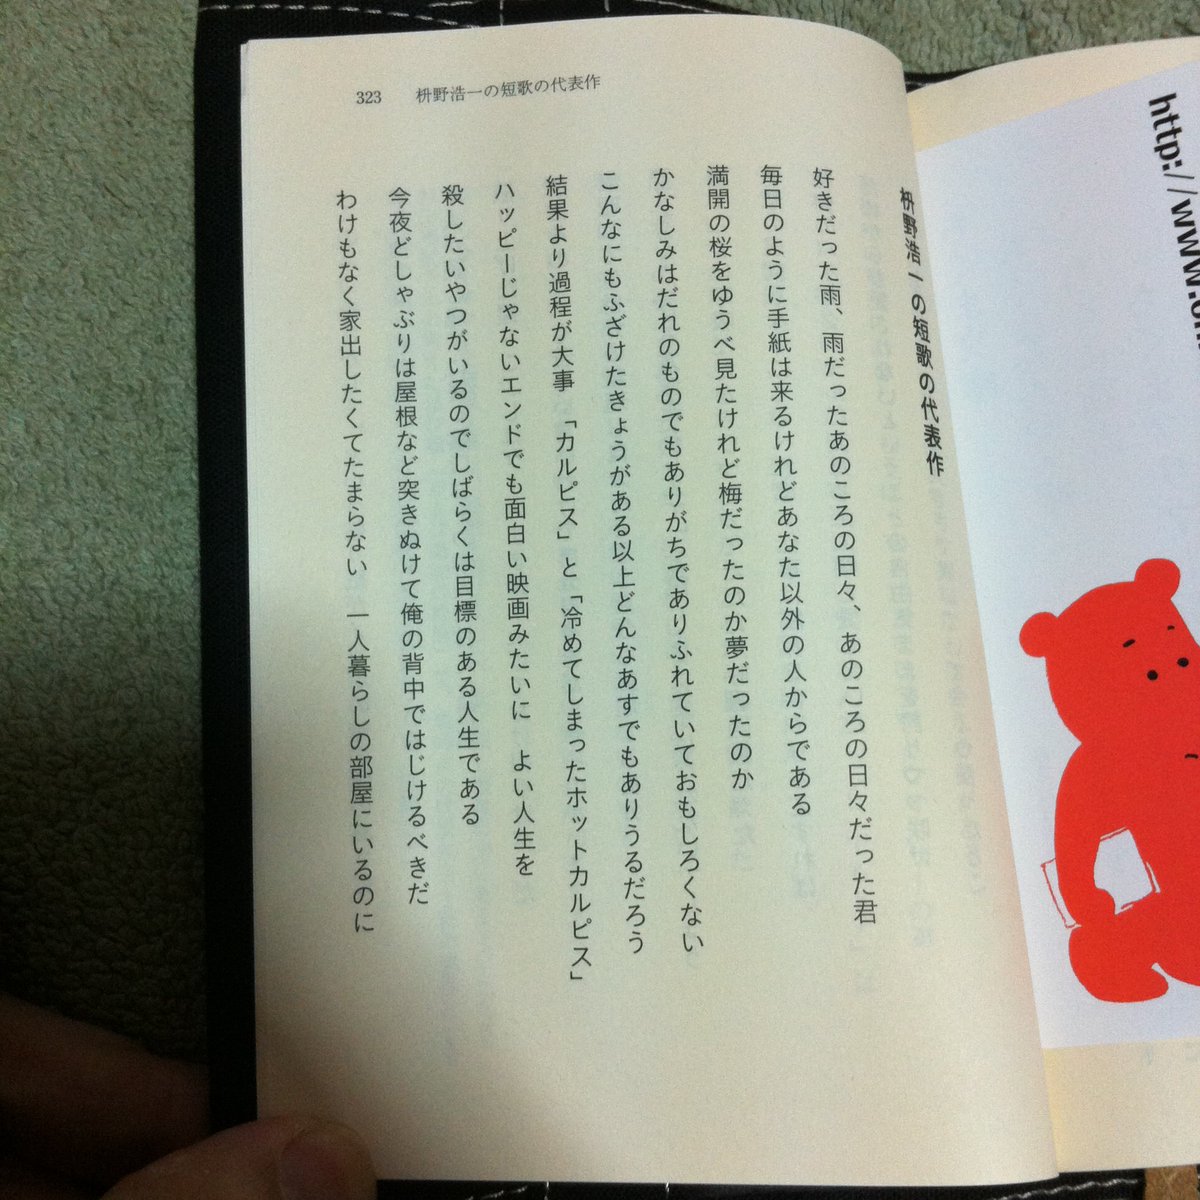 323 枡野浩一の短歌の代表作
枡野浩一の短歌の代表作
好きだった雨、雨だったあのころの日々、あのころの日々だった君
毎日のように手紙は来るけれどあなた以外の人からである
満開の桜をゆうべ見たけれど梅だったのか夢だったのか
かなしみはだれのものでもありがちでありふれていておもしろくない
こんなにもふざけたきょうがある以上どんなあすでもありうるだろう
結果より過程が大事 「カルピス」と「冷めてしまったホットカルピス」
ハッピーじゃないエンドでも面白い映画みたいに よい人生を
殺したいやつがいるのでしばらくは目標のある人生である
今夜どしゃぶりは屋根など突きぬけて俺の背中ではじけるべきだ
わけもなく家出したくてたまらない 一人暮らしの部屋にいるのに
http://www.